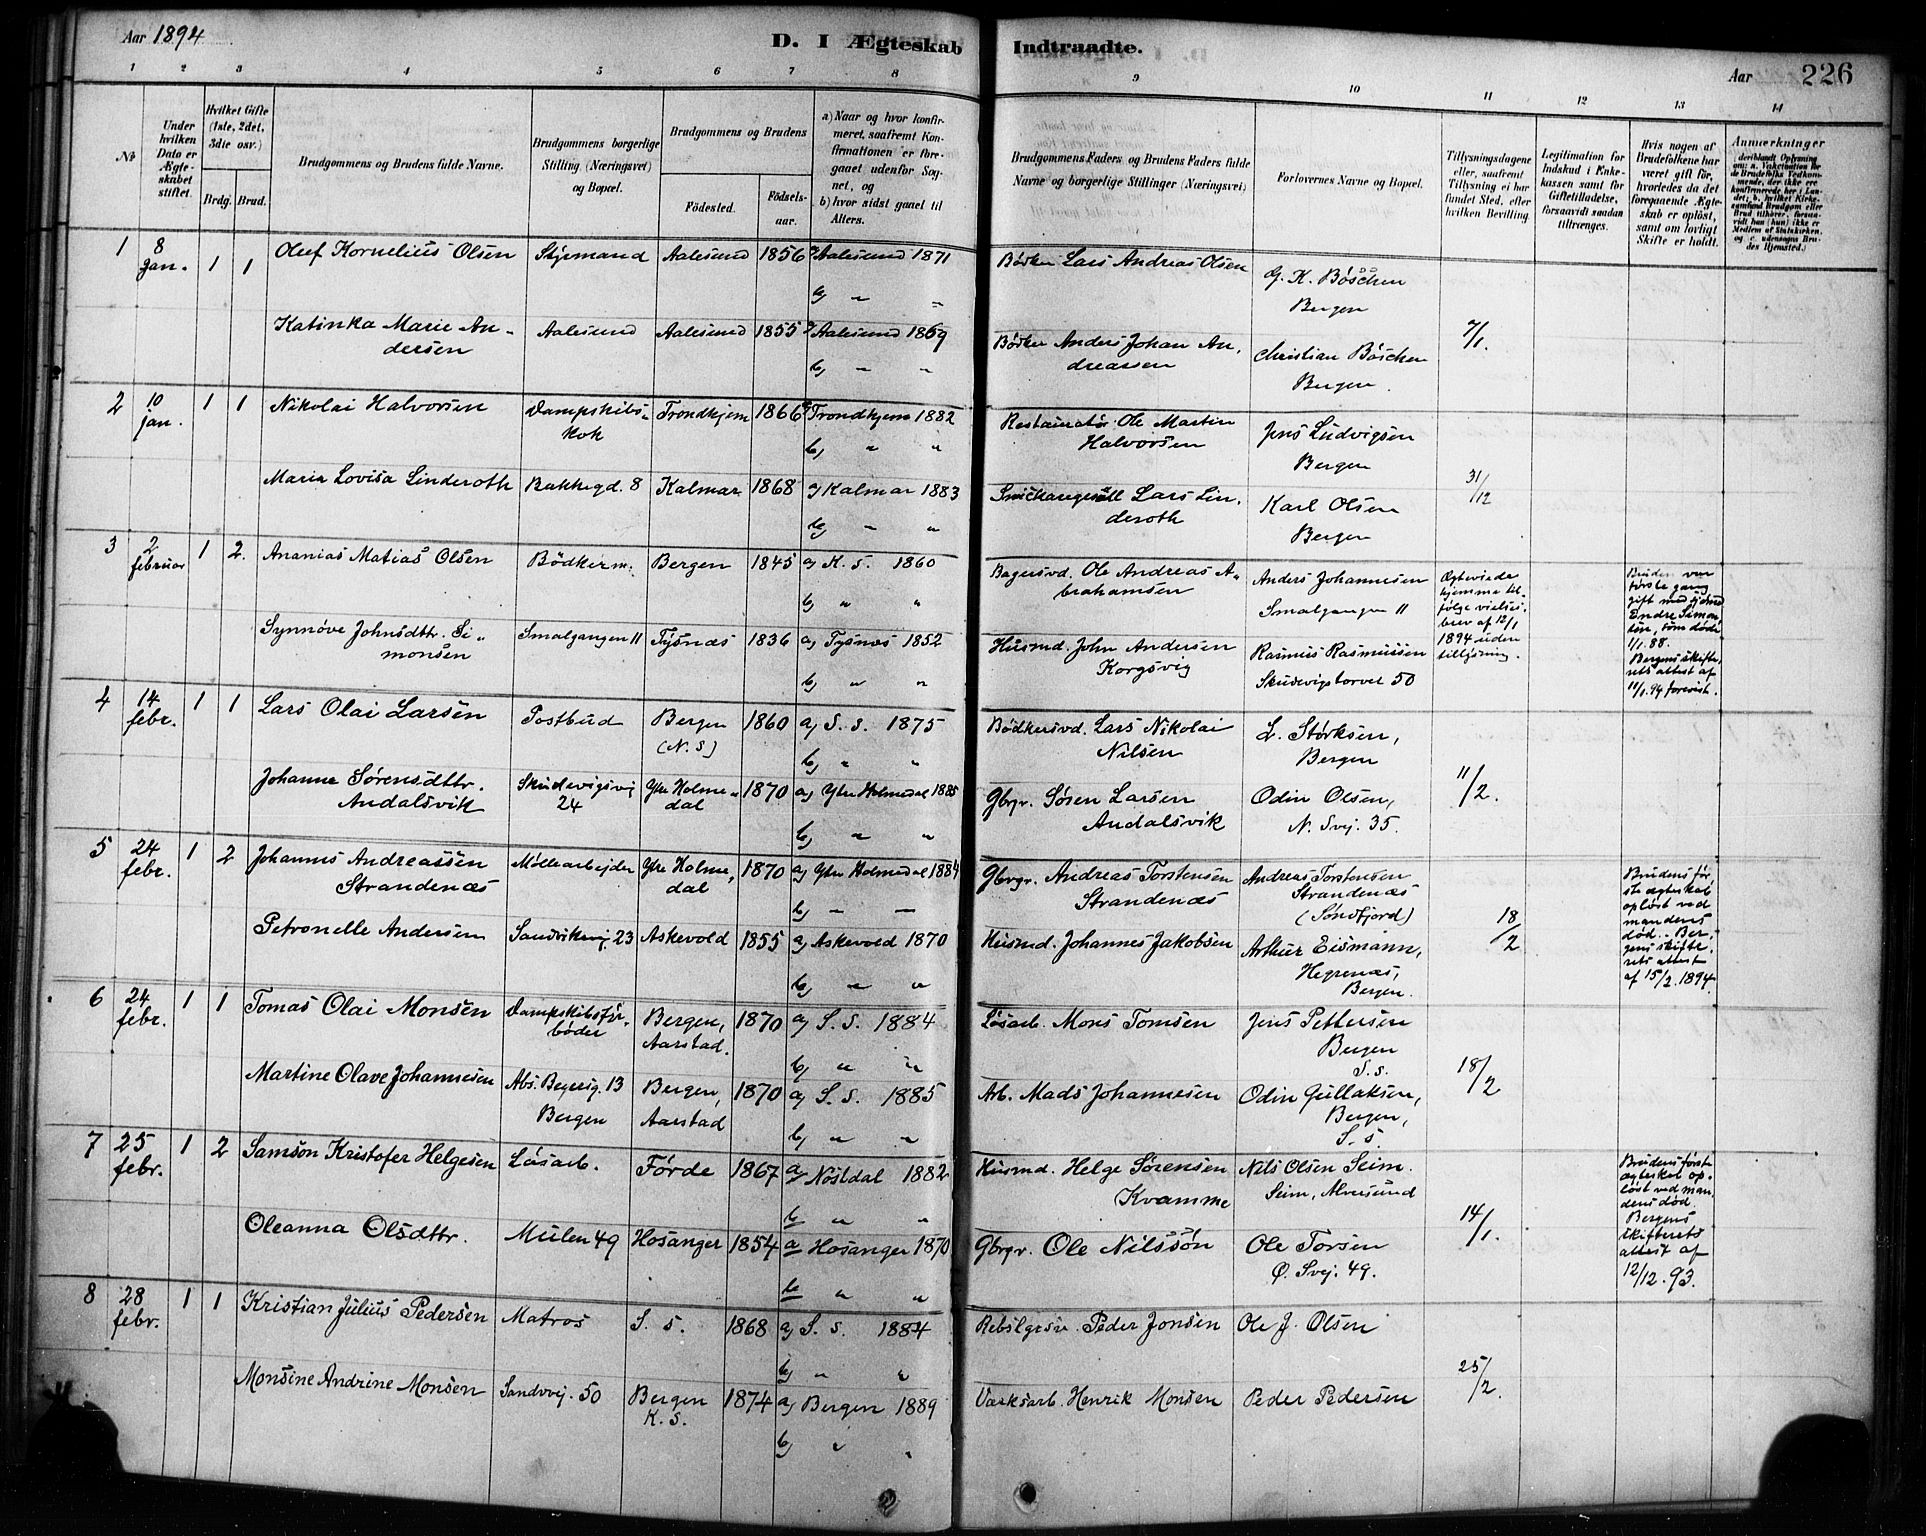 Aar 1894
D. I Ægteskab Indtraadte.
Aar 226
1 2 3 4 5 6 7 8 9 10 11 12 13 14
No
Under hvilken Dato er Ægteskabet stiftet.
Hvilket Gifte (1ste, 2det, 3die osv.)
Brdg. Brud.
Brudgommens og Brudens fulde Navne.
Brudgommens borgerlige Stilling (Næringsvei) og Bopæl.
Brudgommens og Brudens
Fødested. Fødselsaar.
a) Naar og hvor konfirmeret, saafremt Konfirmationen er foregaaet udenfor Sognet, og
b) hvor sidst gaaet til Alters.
Brudgommens Faders og Brudens Faders fulde Navne og borgerlige Stillinger (Næringsvei)
Forlovernes Navne og Bopæl.
Tillysningsdagene eller, saafremt Tillysning ei har fundet Sted, efter hvilken Bevilling.
Legitimation for Indskud i Enkekassen samt for Giftetilladelse, forsaavidt saadan tiltrænges.
Hvis nogen af Brudefolkene har været gift før, hvorledes da det foregaaende Ægteskab er opløst, samt om lovligt Skifte er holdt.
Anmærkninger
1 8 Jan. 1 1 Oluf Kornelius Olsen Styrmand Aalesund 1856 a) Aalesund 1871 Bødker Lars Andreas Olsen G. K. Böschen
b) " " Bergen
Katinka Marie Andersen Aalesund Aalesund 1855 a) Aalesund 1869 Bødker Anders Johan Andreassen Christian Böschen 7/1.
b) " " Bergen
2 10 jan. 1 1 Nikolai Halvorsen Dampskibskok Trondhjem 1866 a) Trondhjem 1882 Restauratør Ole Martin Halvorsen Jens Ludvigsen
b) " " Bergen
Maria Lovisa Linderoth Bakkegd. 8 Kalmar 1868 a) Kalmar 1883 Lars Linderoth Karl Olsen 31/12
b) " " Bergen
3 2 februar 1 2. Ananias Matias Olsen Bödkerm. Bergen 1845 a) K. s. 1860 Bagersvd. Ole Andreas Abrahamsen Anders Johannesen
b) " " Smalgangen 11
Ægteviede hjemme tilfølge vielsesbrev af 12/1 1894 uden tillysning.
Bruden var første gang gift med Endre Simonsen, som døde 1/1 88. Bergens skifterets attest af 11/1 94 forevist.
Synnøve Johnsdttr. Simonsen Smalgangen 11 Tysnæs 1836 a) Tysnæs 1852 Husmd. John Andersen Korgsvig Rasmus Rasmussen
b) " " Skudevigstorvet 50
4 14 febr. 1 1 Lars Olai Larsen Postbud Bergen (N. s) 1860 a) S. s. 1875 Bödkersvd. Lars Nikolai Nilsen L. Størksen,
b) " " Bergen
Johanne Sørensdttr. Andalsvik Skudevigsvej 24 Ytre Holmedal 1870 a) Ytre Holmedal 1885 Gbrgr. Søren Larsen Andalsvik Odin Olsen, 11/2.
b) " " N. Svej. 35.
5 24 febr. 1 2 Johannes Andreassen Strandenæs Møllearbejder Ytre Holmedal 1870 a) Ytre Holmedal 1884 Gbrgr. Andreas Torstensen Strandenæs Andreas Torstensen Strandenæs
b) — — (Søndfjord)
Brudens første ægteskab opløst ved mandens død. Bergens skifterets attest af 15/2. 1894.
Petronelle Andersen Sandvikevej 23 Askevold 1855 a) Askevold 1870 Husmd. Johannes Jakobsen Arthur Eismann, 18/2
b) " " Hegrenæs, Bergen.
6 24 febr. 1 1 Tomas Olai Monsen Dampskibsfyrbøder Bergen, Aarstad. 1870 a) S. s. 1884 Løsarb. Mons Tomsen Jens Pettersen
b) " " Bergen S. s.
Martine Olave Johannesen Abs. Beyersg. 13 Bergen Bergen, Aarstad 1870 a) S. s. 1885 Arb. Mads Johannesen Odin Gullaksen, 18/2
b) " " Bergen, S. s.
7 25 febr. 1 2 Samson Kristofer Helgesen Løsarb. Førde 1867 a Nøstdal 1882 Husmd. Helge Sørensen Kvamme Nils Olsen Seim.
b " " Seim, Alversund
Brudens første ægteskab opløst ved mandens død Bergens skifterets attest af 12/12. 93.
Oleanna Olsdttr. Mulen 49 Hosanger 1854 a Hosanger 1870 Gbrgr. Ole Nilssøn Ole Torsen 14/1.
b " " Ø. Svej. 49.
8 28 febr. 1 1 Kristian Julius Pedersen Matros S. s. 1868 a) S. s. 1884 Peder Jonsen Ole J. Olsen
b) " "
Monsine Andrine Monsen Sandvej. 50 Bergen K. S. 1874 a) Bergen 1889 Værksarb. Henrik Monsen Peder Pedersen 25/2.
b) " "